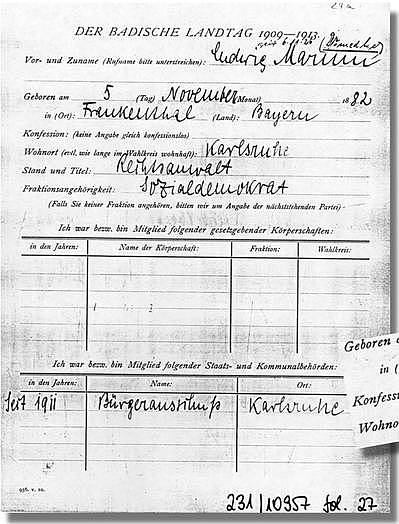 29a
DER BADISCHE LANDTAG 1909—1913.
seit
Vor- und Zuname (Rufname bitte unterstreichen): Ludwig Marum
Geboren am 5 (Tag) November (Monat) 1882
in (Ort): Frankenthal (Land): Bayern
Konfession: (keine Angabe gleich konfessionslos)
Wohnort (evtl. wie lange im Wahlkreis wohnhaft): Karlsruhe
Stand und Titel: Rechtsanwalt
Fraktionsangehörigkeit: Sozialdemokrat
(Falls Sie keiner Fraktion angehören, bitten wir um Angabe der nächststehenden Partei)
Ich war bezw. bin Mitglied folgender gesetzgebender Körperschaften:
in den Jahren: Name der Körperschaft: Fraktion: Wahlkreis:
Ich war bezw. bin Mitglied folgender Staats- und Kommunalbehörden:
in den Jahren: Name: Ort:
Seit 1911 Bürgerausschuß Karlsruhe
Geboren
in (
Konfess
Wohno
231/10957 fol. 27